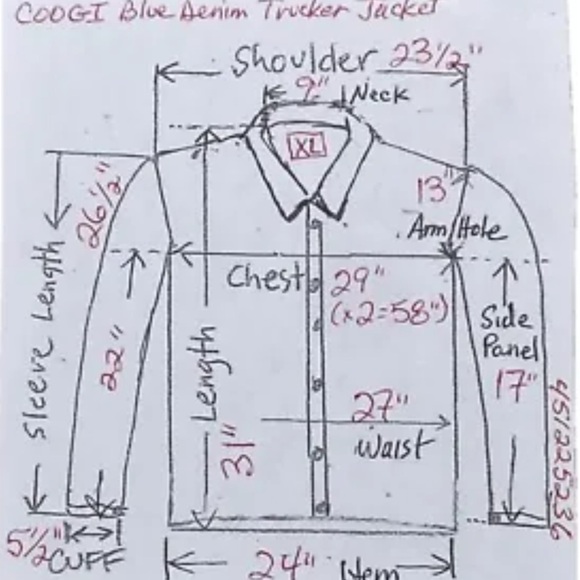 COOGI Blue Denim Trucker Jacket
Shoulder 23 1/2"
9" Neck
XL
26 1/2"
13"
Arm/Hole
Chest 29"
(x2=58")
Sleeve Length
22"
Length
31"
Side
Panel
17"
27"
Waist
451225236
5 1/2" CUFF
24" Hem